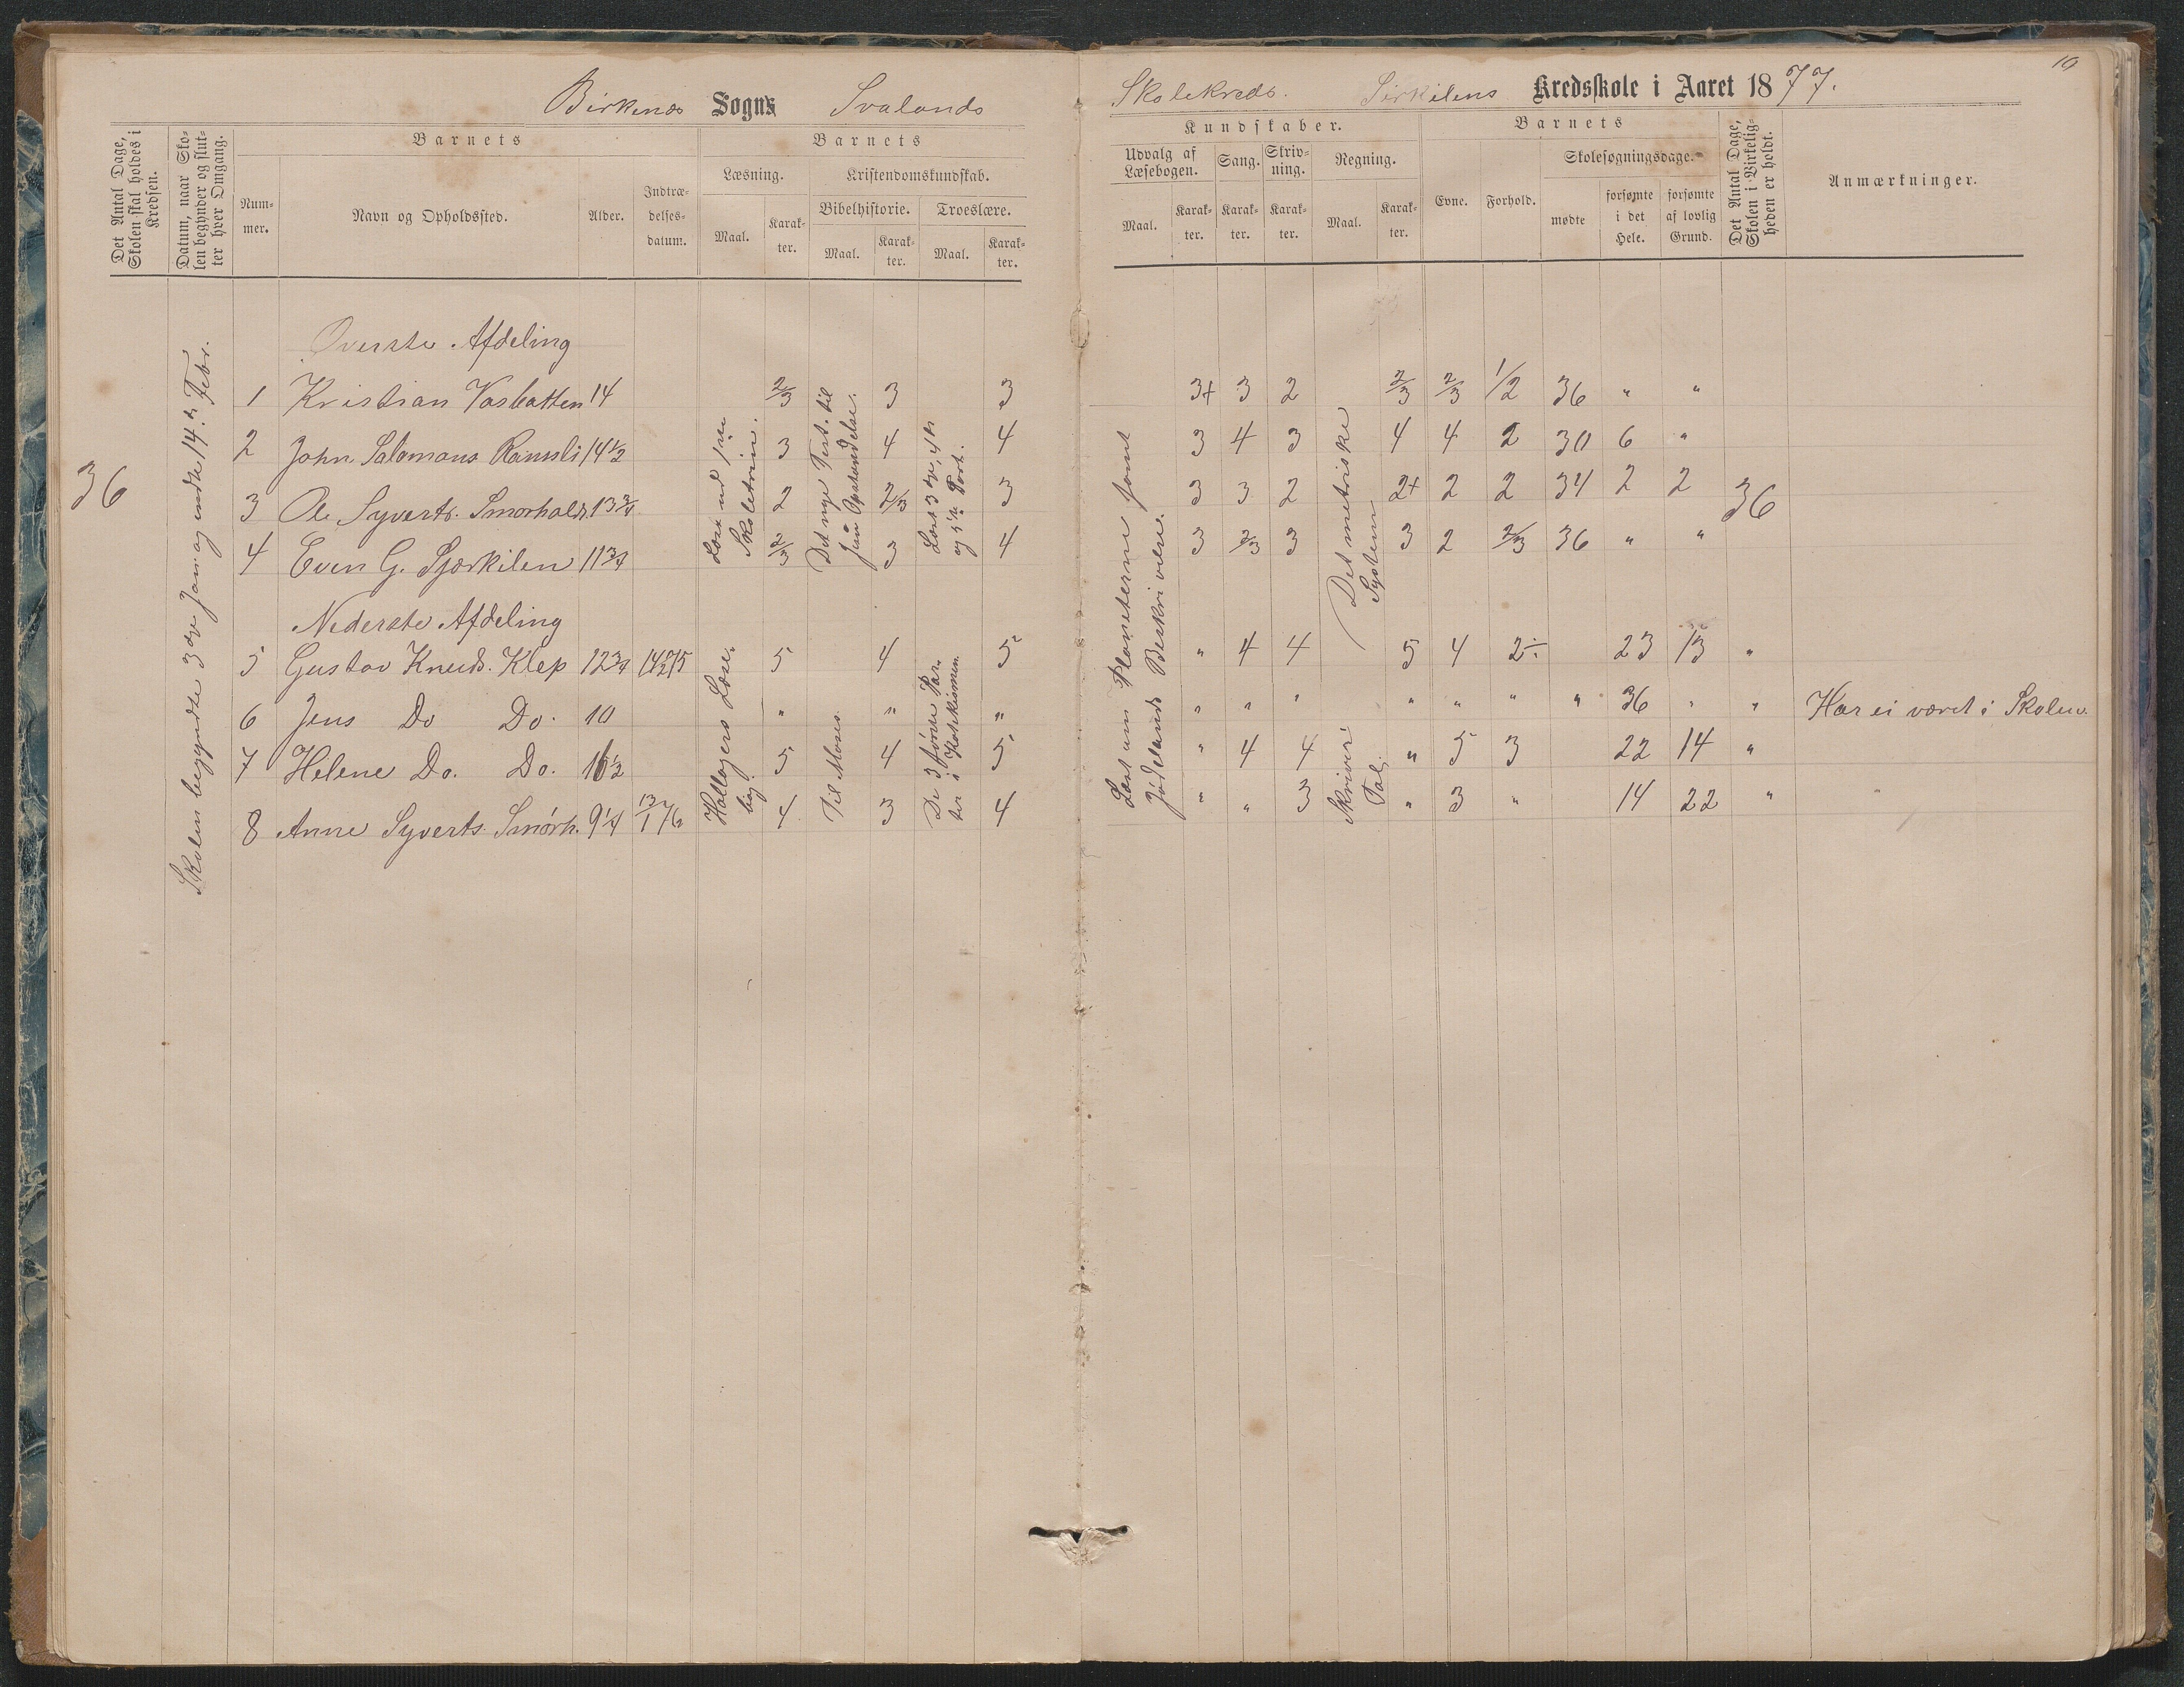 Birkenes Sogns Svalands
Skolekreds. Sirkilens Kredsskole i Aaret 1877.
10
Det Antal Dage, Skolen skal holdes i Kredsen.
Datum, naar Skolen begynder og slutter hver Omgang.
Barnets
Nummer.
Navn og Opholdssted.
Alder.
Indtrædelsesdatum.
Barnets
Læsning.
Maal.
Karakter.
Kristendomskundskab.
Bibelhistorie.
Maal.
Karakter.
Troeslære.
Maal.
Karakter.
Kundskaber.
Udvalg af Læsebogen.
Maal.
Karakter.
Sang.
Karakter.
Skrivning.
Karakter.
Regning.
Maal.
Karakter.
Barnets
Evne.
Forhold.
Skolesøgningsdage.
mødte
forsømte i det Hele.
forsømte af lovlig Grund.
Det Antal Dage, Skolen i Virkeligheden er holdt.
Anmærkninger.
36
Skolen begyndte 3die Jan. og endte 14de Febr.
Læst ud 1ste Skoletrin.
Det nye Test. til Jesu Opstandelse.
Læst 3die, 4de og 5te Part.
Læst om Planeterne samt Jødelands Beskrivelse.
Det metriske System
Øverste Afdeling
1 Kristian Vasbotten 14 2/3 3 3 3+ 3 2 2/3 2/3 1/2 36 " "
2 John Salomons. 14 1/2 3 4 4 3 4 3 4 4 2 30 6 "
3 Ole Syverts. Smørhold. 13 3/4 2 2/3 3 3 3 2 2+ 2 2 34 2 2 36
4 Even G. Sjørkilen 11 3/4 2/3 3 4 3 2/3 3 3 2 2/3 36 " "
Nederste Afdeling
Hallagers Læsebog.
Til Moses.
De 3 første Parter i Katekismen.
Skriver Tal.
5 Gustav Knuds. Klep 12 3/4 14/2 75 5 4 5 " 4 4 5 4 2÷ 23 13 "
6 Jens Do Do. 10 " " " " " " " " " " 36 " " Har ei været i Skolen.
7 Helene Do. Do. 16 1/2 5 4 5 " 4 4 " 5 3 22 14 "
8 Anne Syverts. Smørh. 9 1/4 13/1 76 4 3 4 " " 3 " 3 " 14 22 "